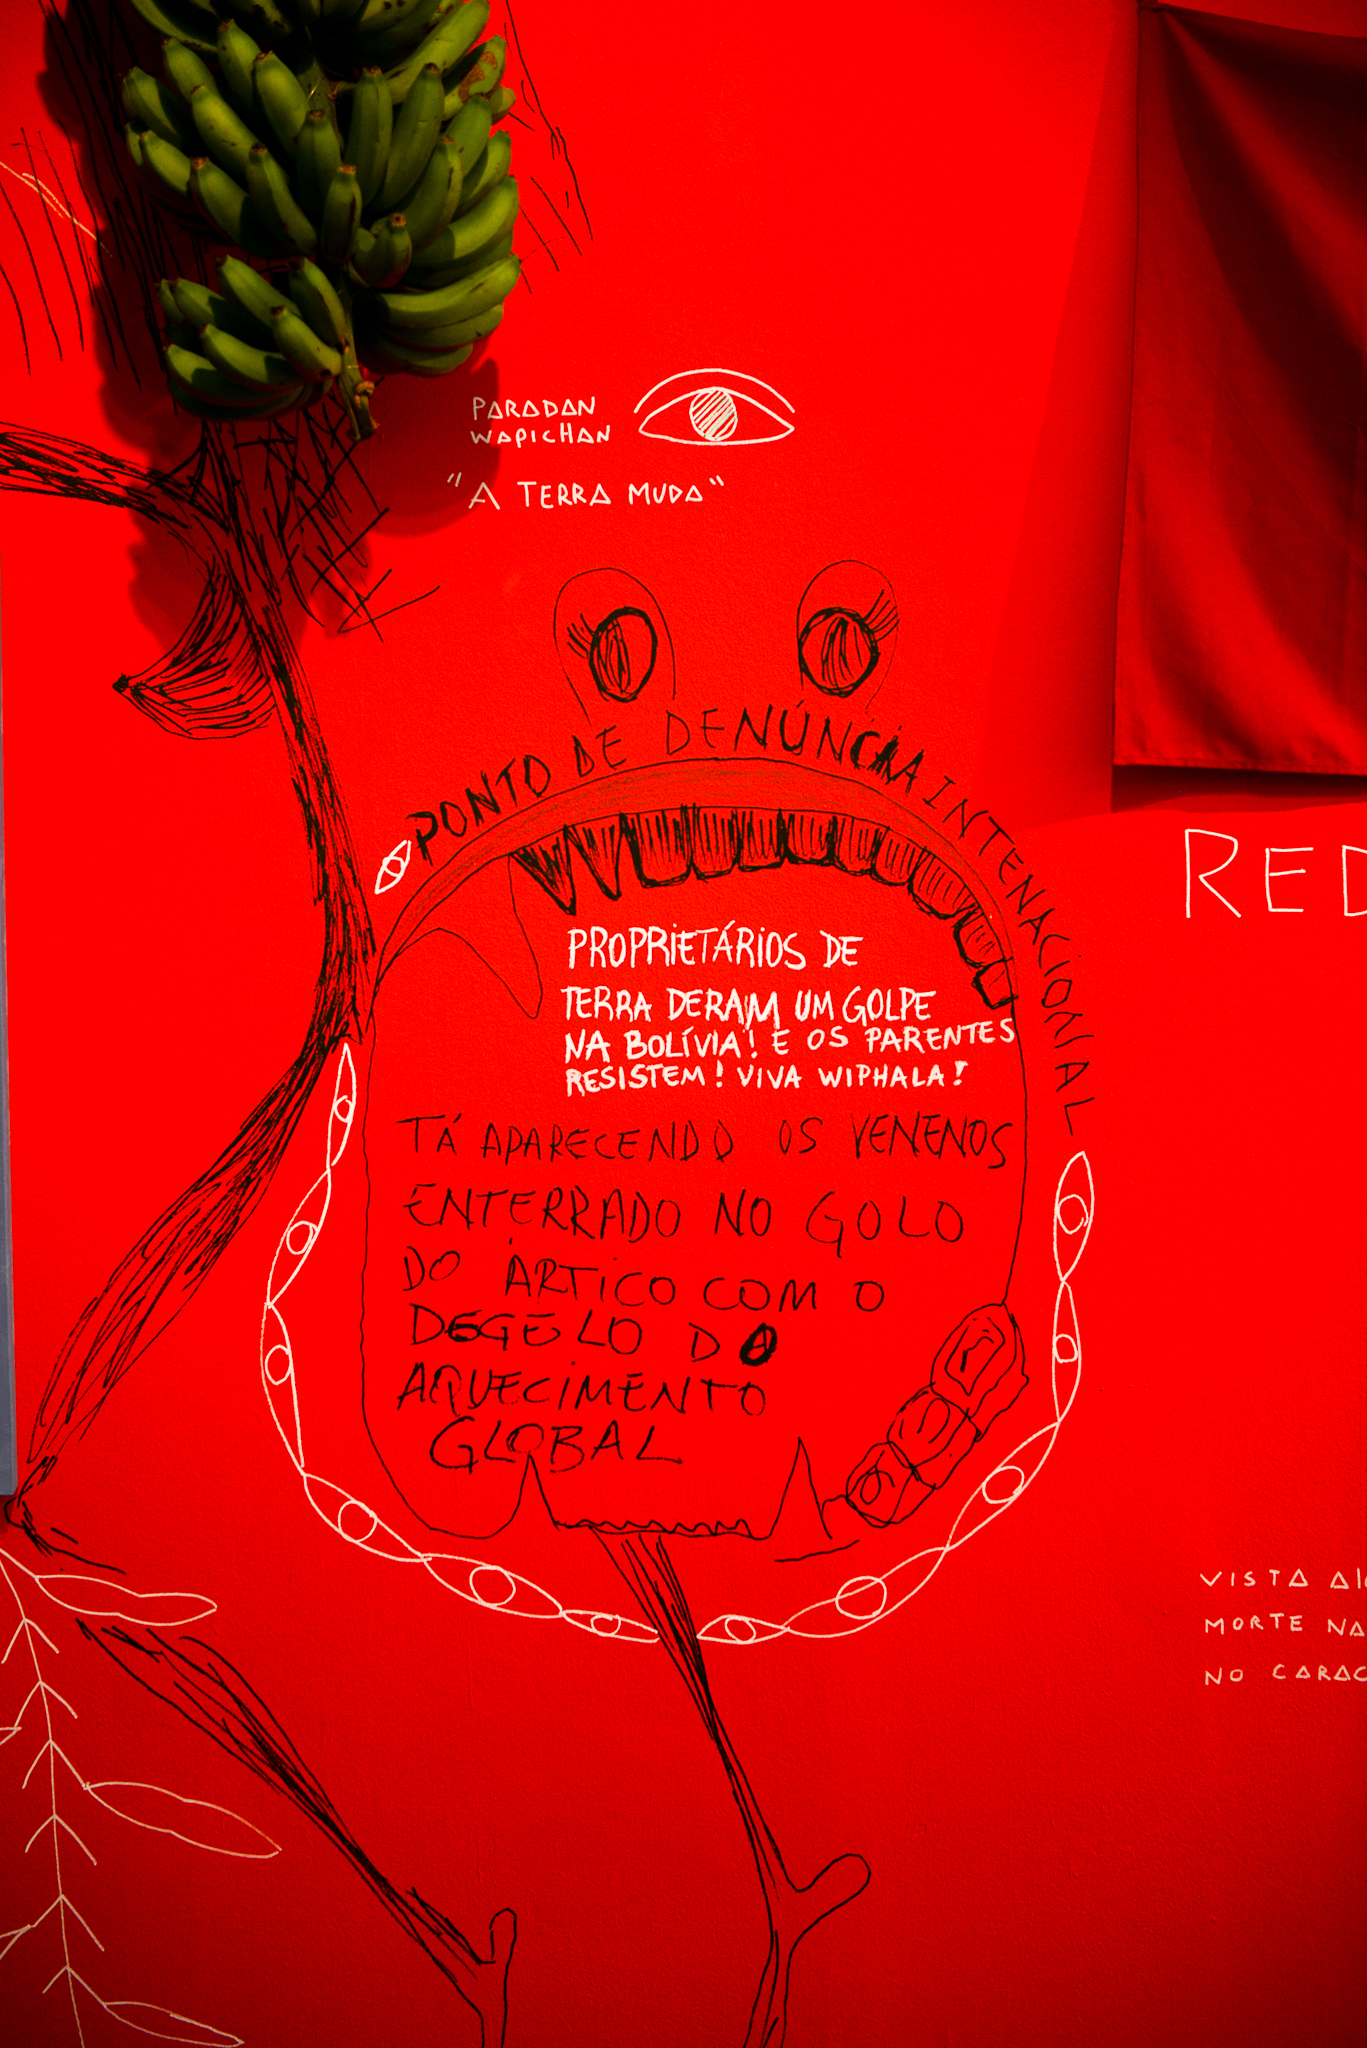 PARADAN
WAPICHAN
"A TERRA MUDA"
PONTO DE DENÚNCIA INTENACIONAL
PROPRIETÁRIOS DE
TERRA DERAM UM GOLPE
NA BOLÍVIA! E OS PARENTES
RESISTEM! VIVA WIPHALA!
TÁ APARECENDO OS VENENOS
ENTERRADO NO GOLO
DO ÁRTICO COM O
DEGELO DO
AQUECIMENTO
GLOBAL
RED
VISTA
MORTE NA
NO CARAC